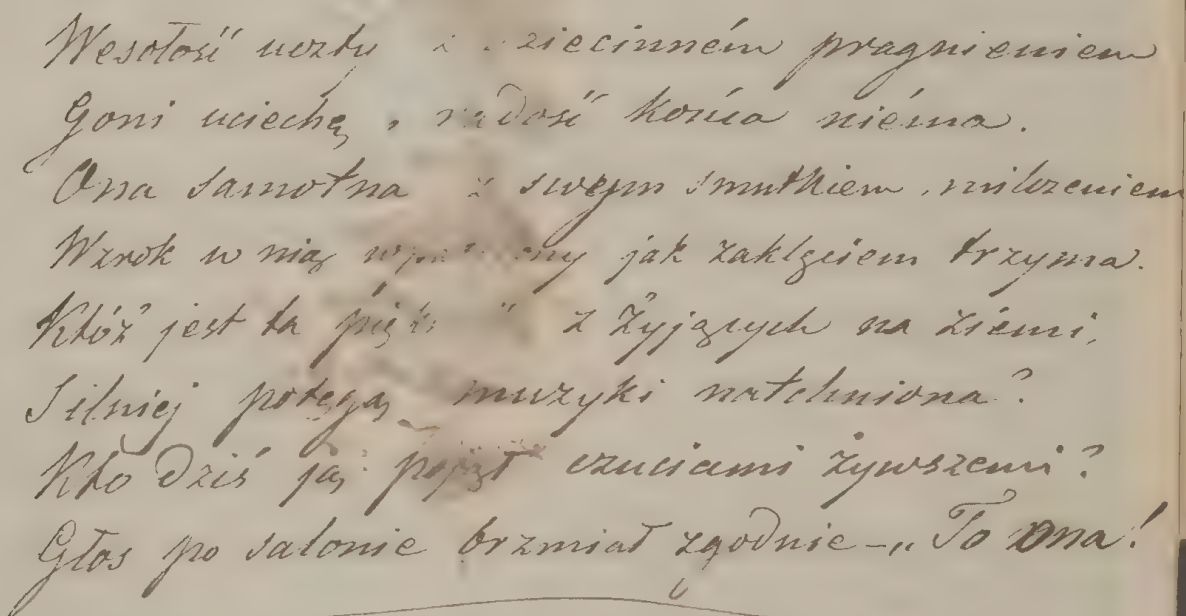 Wesołość uczty z dziecinném pragnieniem
Goni uciechę, radość końca niéma.
Ona samotna z swym smutkiem, milczeniem
Wzrok w nią jak zaklęciem trzyma.
Któż jest ta z żyjących na ziémi,
Silniej potęgą muzyki natchniona?
Kto dziś ją pojął czuciami żywszemi?
Głos po salonie brzmiał zgodnie – „To ona!